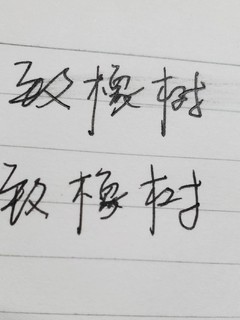 致橡树
致橡树